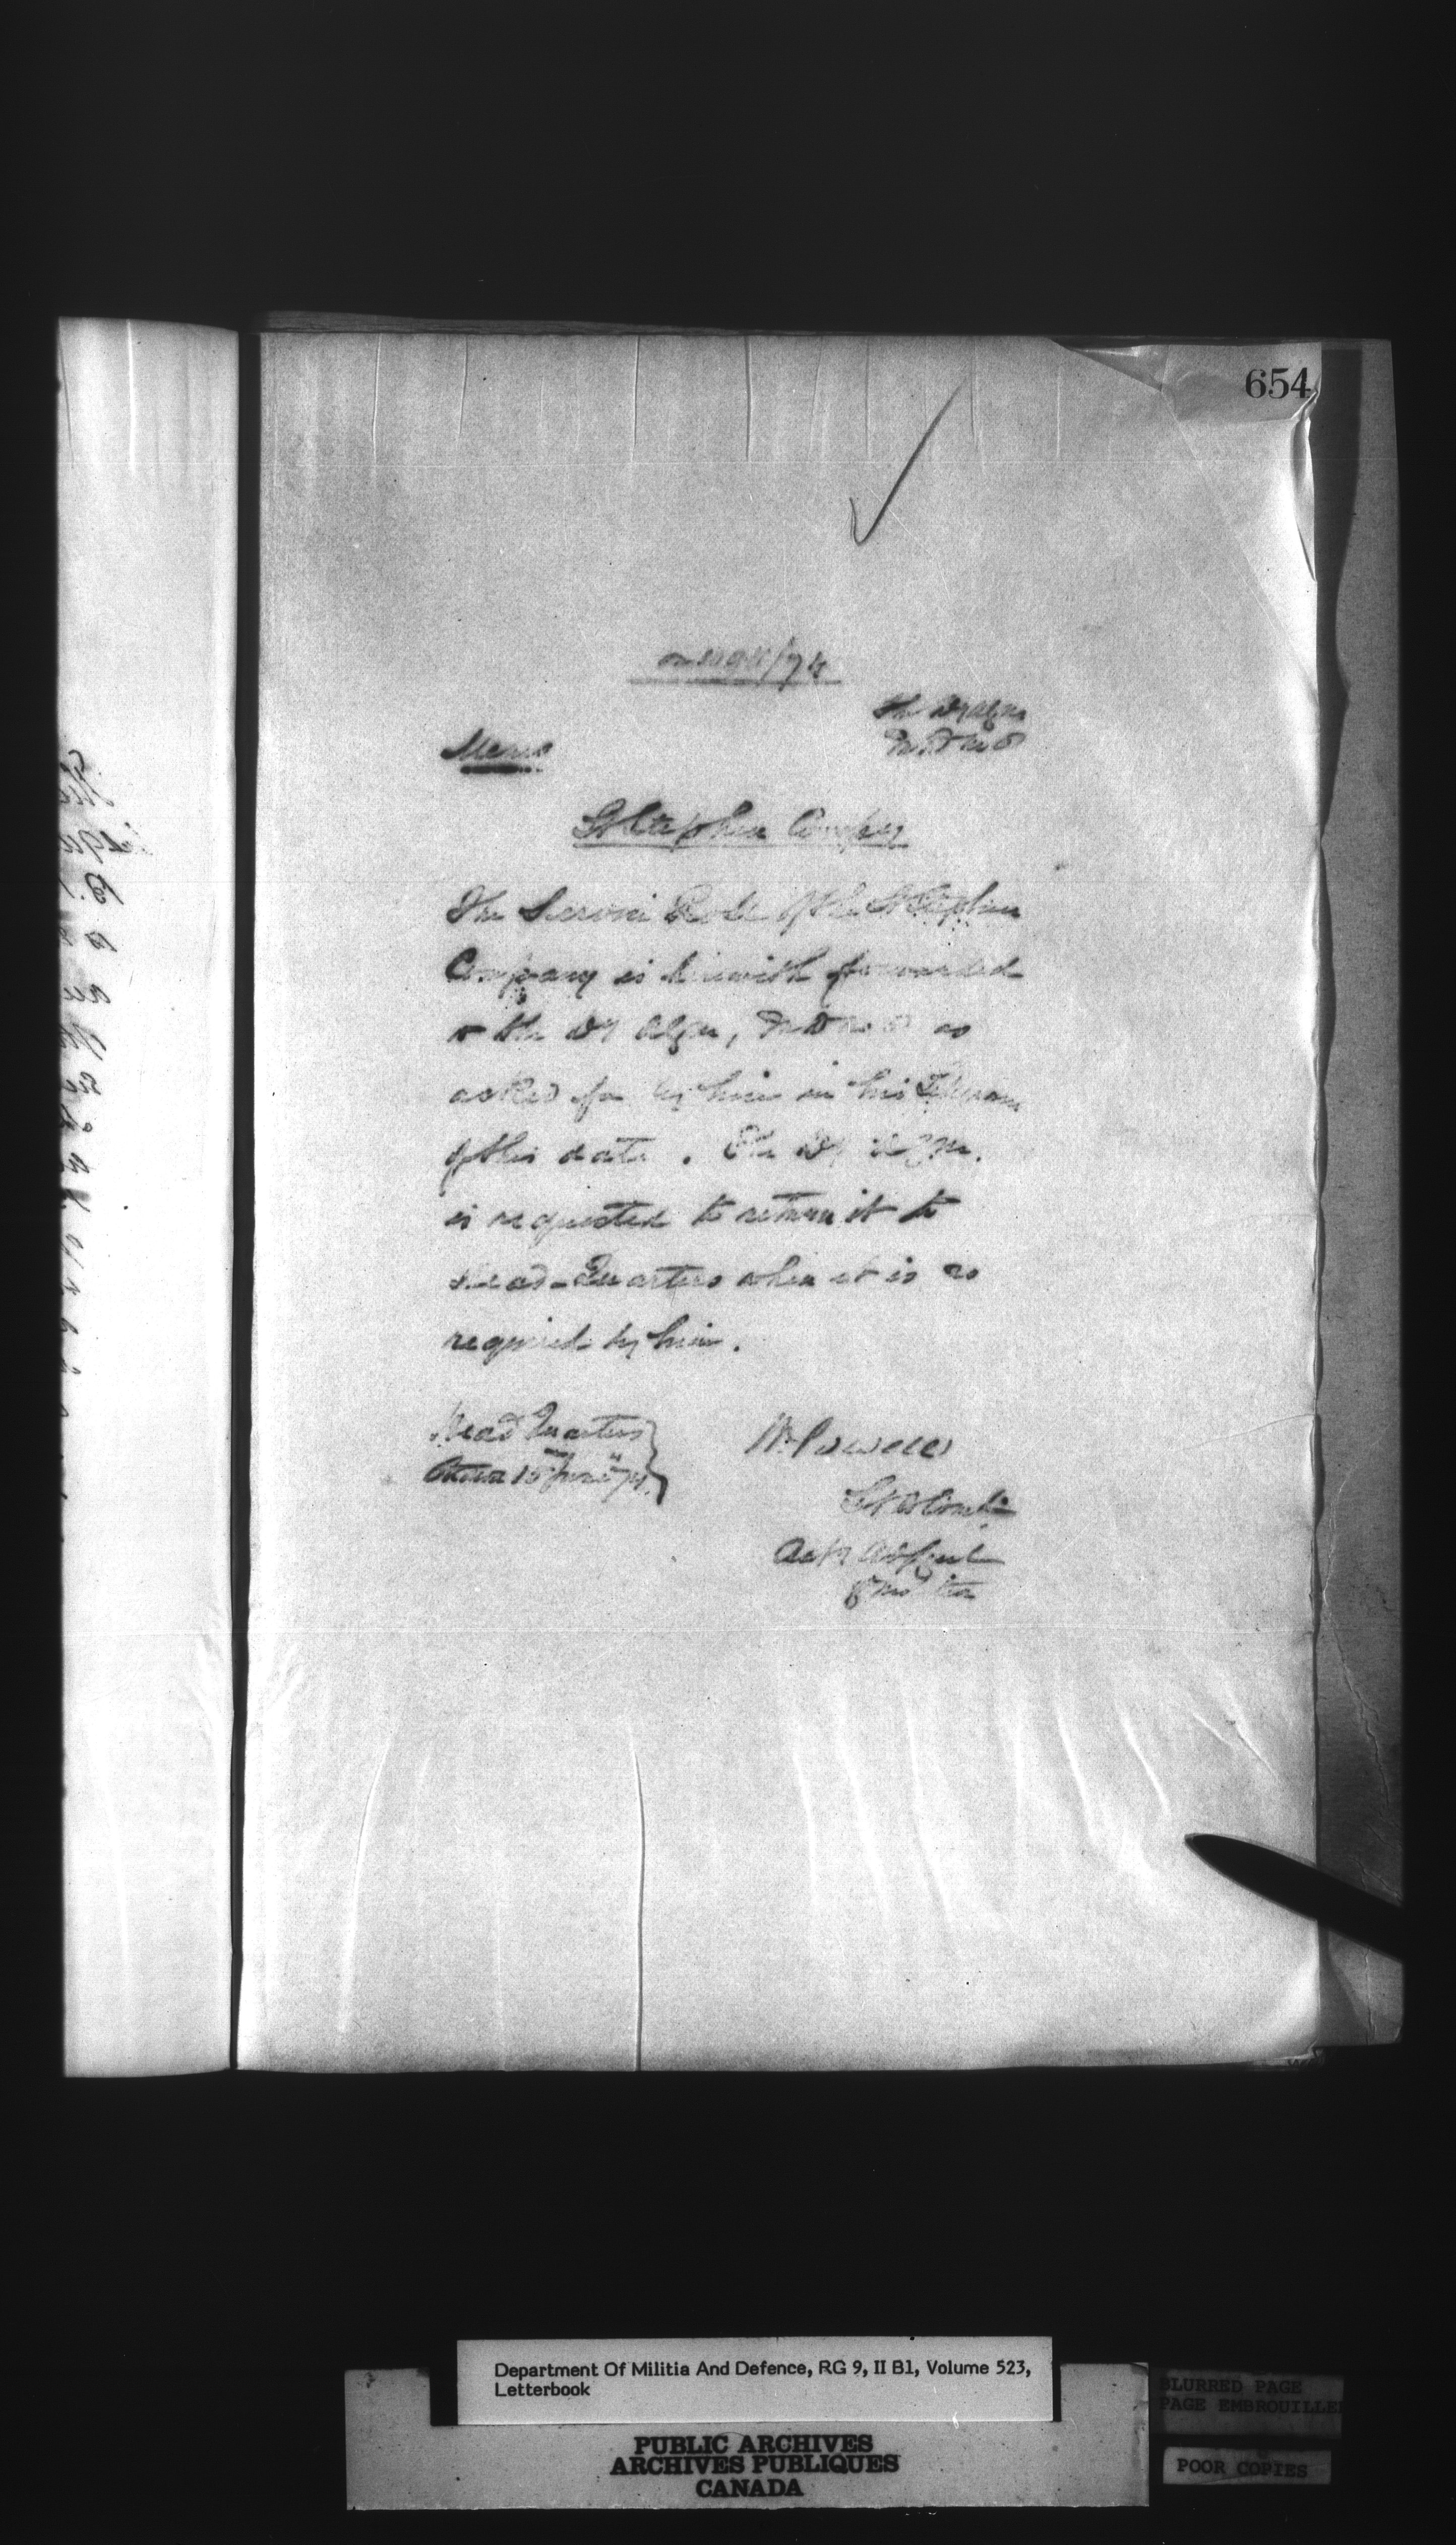 654
The Dy AGM
MD No 8
Memo
St Stephen Compy
The Service Roll of the St Stephen
Company is herewith forwarded
to the Dy AGM, MD No 8 as
asked for by him in his Telegram
of this date. The Dy AGM.
is requested to return it to
Head-Quarters when it is no
required by him.
Head Quarters
Ottawa 15 June 74.
W. Powell
Lt Colonel
Actg Adj Genl
of Militia
Department Of Militia And Defence, RG 9, II B1, Volume 523,
Letterbook
PUBLIC ARCHIVES
ARCHIVES PUBLIQUES
CANADA
BLURRED PAGE
PAGE EMBROUILLEE
POOR COPIES